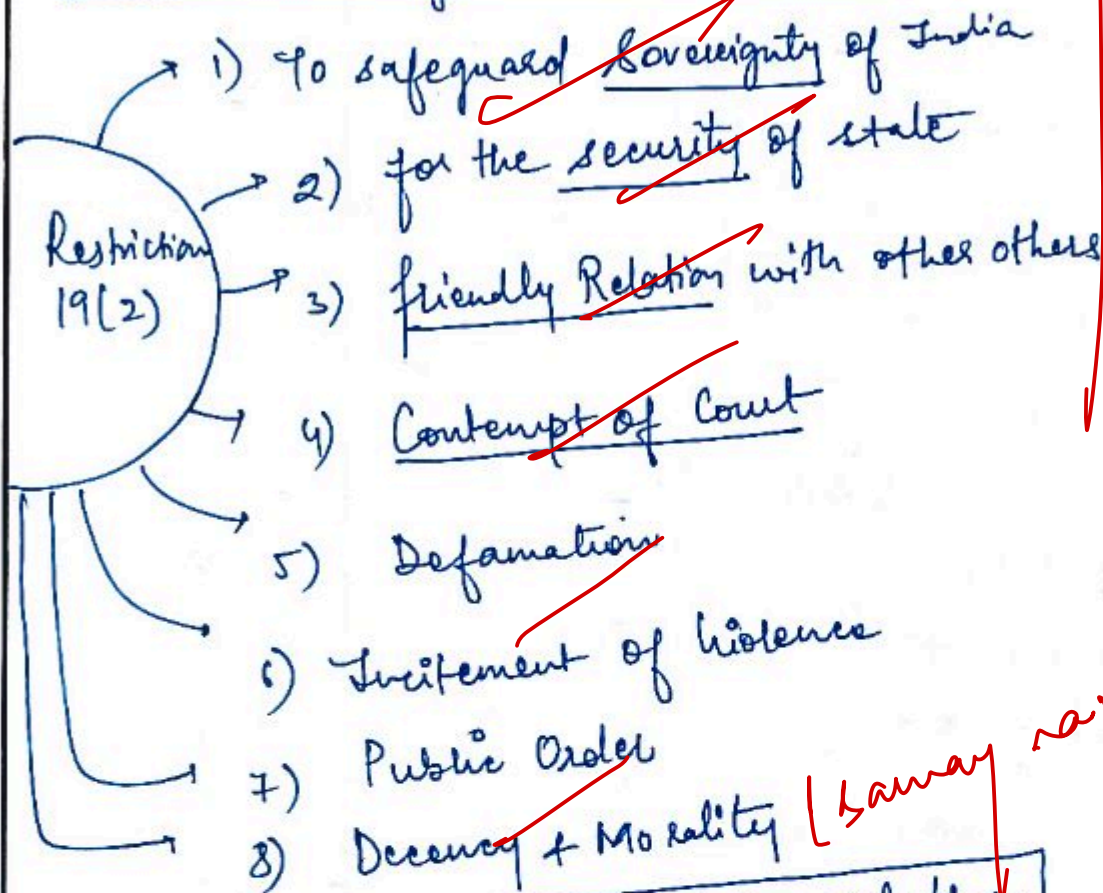 1) To safeguard Sovereignty of India
2) for the security of state
3) friendly Relation with other others
Restriction
19(2)
4) Contempt of Court
5) Defamation
6) Incitement of Violence
7) Public Order
8) Decency + Morality (samay rai